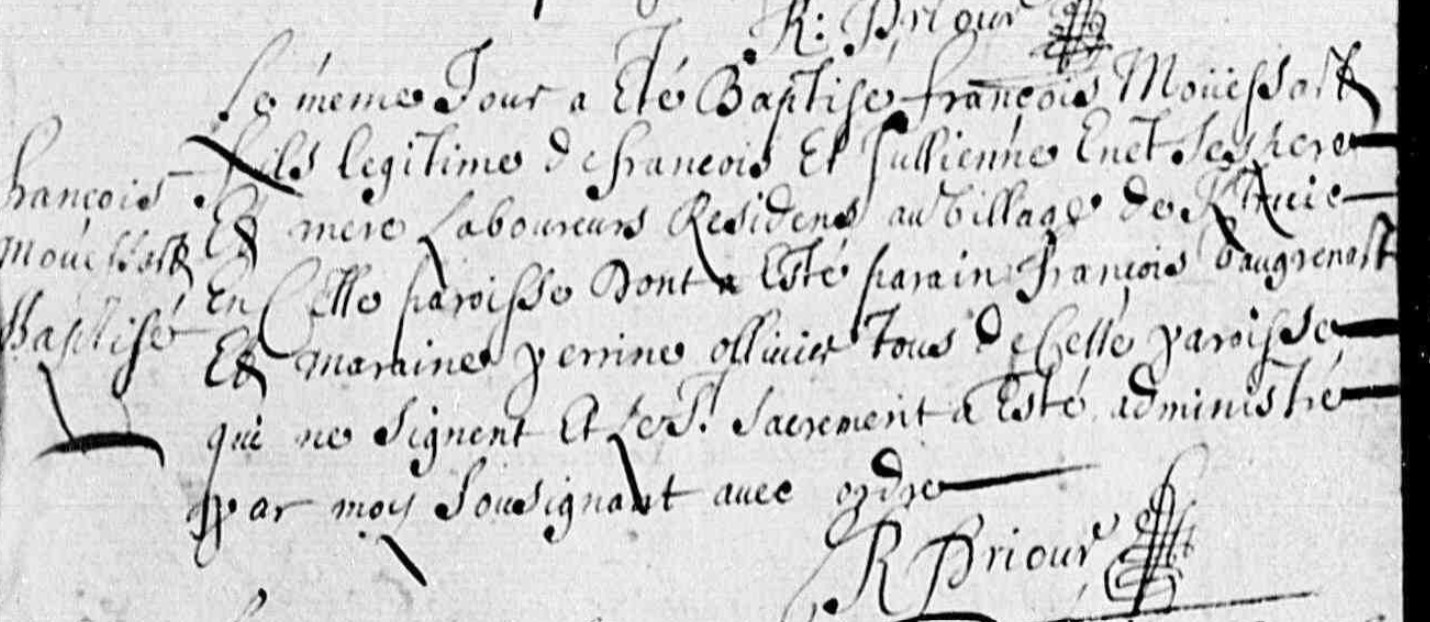 R: Priour
Le méme Jour a Eté Baptisé françois Moüessart
fils legitime de francois Et Jullienne Enet ses pere
Et mere Laboureurs Residens au Village de
En Celle paroisse Dont a Esté parain françois Daugrenart
Et maraine perrine ollivier tous de Celle paroisse
qui ne signent Et le St. Sacrement a Esté administré
par moy Sousignant avec ordre
R Priour
françois
Mouessart
Baptisé